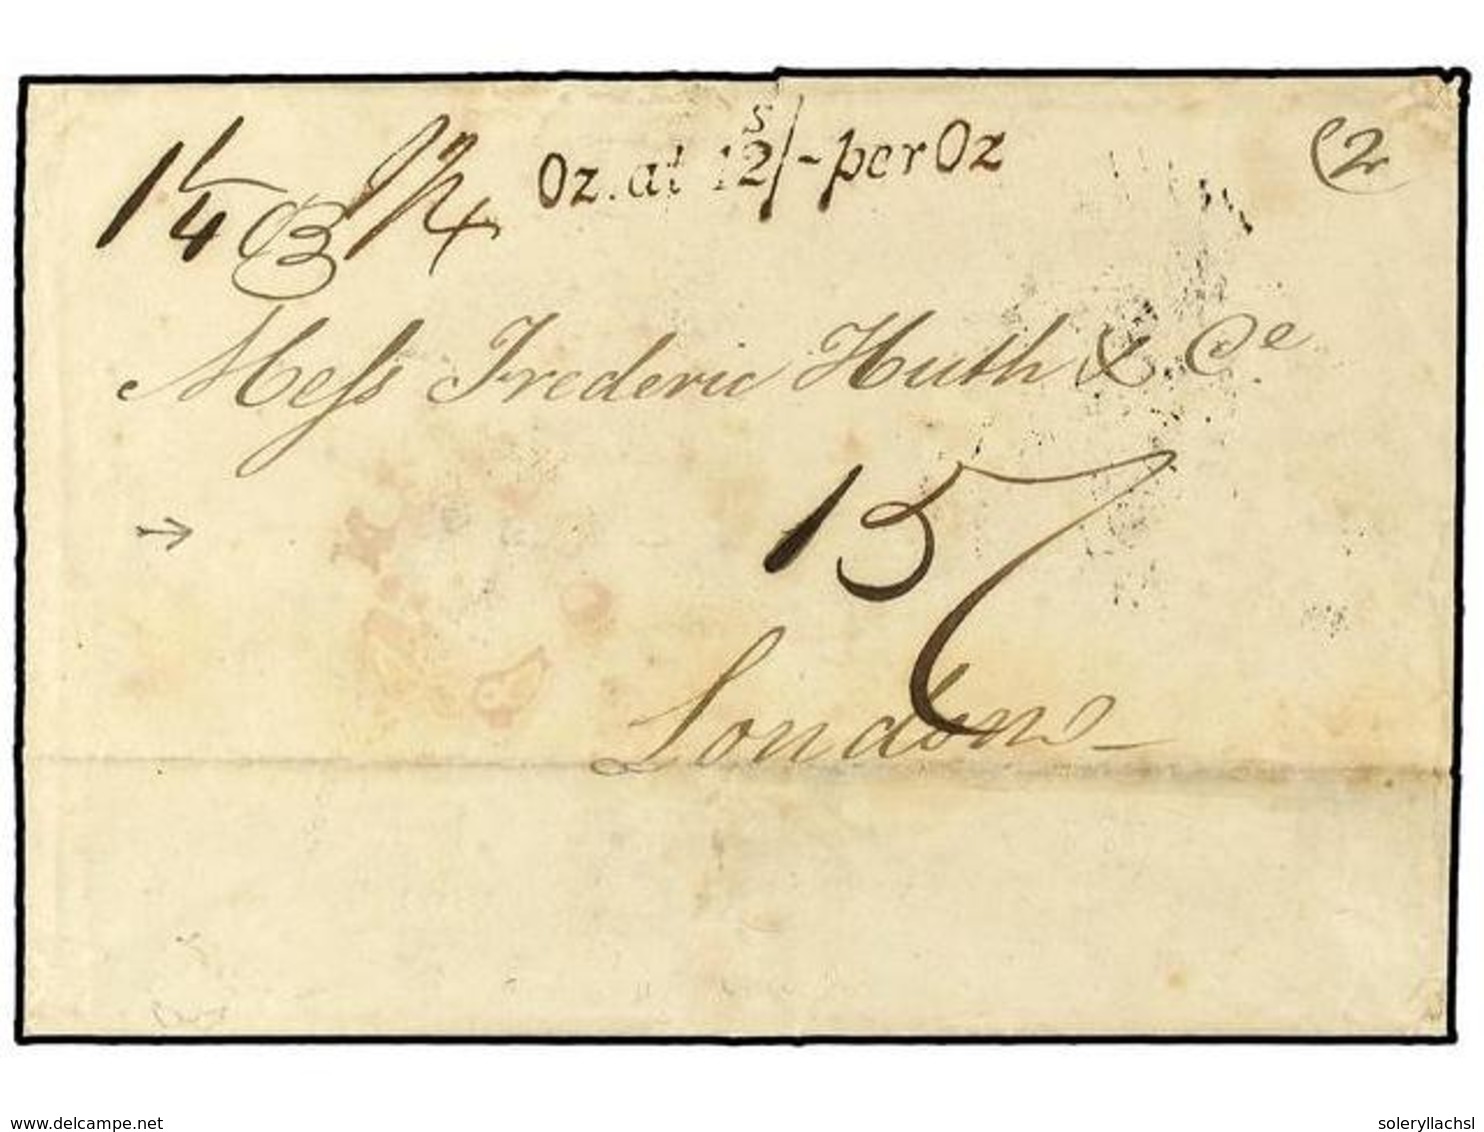 1 1/4
Oz. at 12s/- per Oz
(2
Mess Frederic Huth & Co
15/
London
www.delcampe.net
soleryllachsl